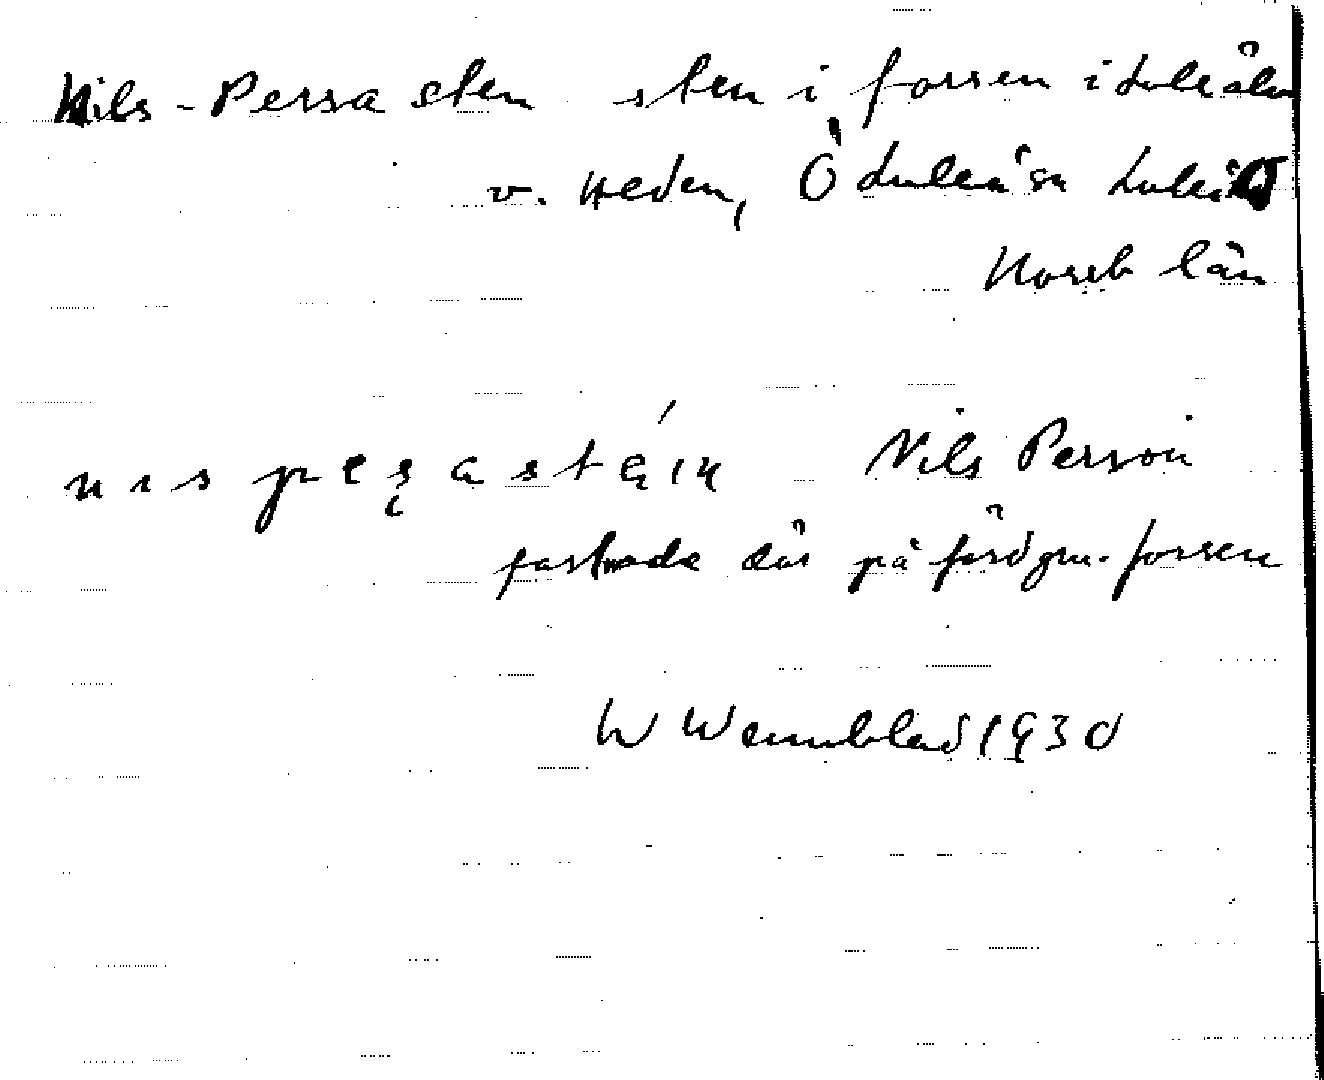 Nils-Persa sten sten i forsen i Luleälv
v. Heden, Ö Luleå sn Luleå
Norrb län
Nils Person
fastnade där på färd gm. forsen
W Wennblad 1930